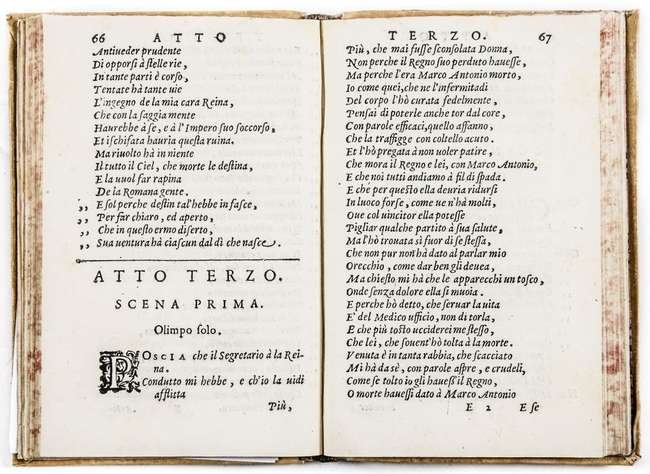 66 ATTO
Antiueder prudente
Di opporsi à stelle rie,
In tante parti è corso,
Tentate hà tante uie
L'ingegno de la mia cara Reina,
Che con la saggia mente
Haurebbe à se, e à l'Impero suo soccorso,
Et ischifata hauria questa ruina.
Ma riuolto hà in niente
Il tutto il Ciel, che morte le destina,
E la uuol far rapina
De la Romana gente.
,, E sol perche destin tal'hebbe in fasce,
,, Per far chiaro, ed aperto,
,, Che in questo ermo diserto,
,, Sua uentura hà ciascun dal dì che nasce.
ATTO TERZO.
SCENA PRIMA.
Olimpo solo.
POSCIA che il Segretario à la Rei-
na.
Condutto mi hebbe, e ch'io la uidi
afflitta
Più,
TERZO. 67
Più, che mai fusse sconsolata Donna,
Non perche il Regno suo perduto hauesse,
Ma perche l'era Marco Antonio morto,
Io come quei, che ne l'infermitadi
Del corpo l'hò curata fedelmente,
Pensai di poterle anche tor dal core,
Con parole efficaci, quello affanno,
Che la trafigge con coltello acuto.
Et l'hò pregata à non uoler patire,
Che mora il Regno e lei, con Marco Antonio,
E che noi tutti andiamo à fil di spada.
E che per questo ella deuria ridursi
In luoco forse, come ue n'hà molti,
Oue col uincitor ella potesse
Pigliar qualche partito à sua salute,
Ma l'hò trouata sì fuor di se stessa,
Che non pur non hà dato al parlar mio
Orecchio, come dar ben gli deuea,
Ma chiesto mi hà che le apparecchi un tosco,
Onde senza dolore ella si muoia.
E perche hò detto, che seruar la uita
E' del Medico ufficio, non di torla,
E che più tosto ucciderei me stesso,
Che lei, che souent'hò tolta à la morte.
Venuta è in tanta rabbia, che scacciato
Mi hà da sè, con parole aspre, e crudeli,
Come se tolto io gli hauessi il Regno,
O morte hauessi dato à Marco Antonio
E 2 E se